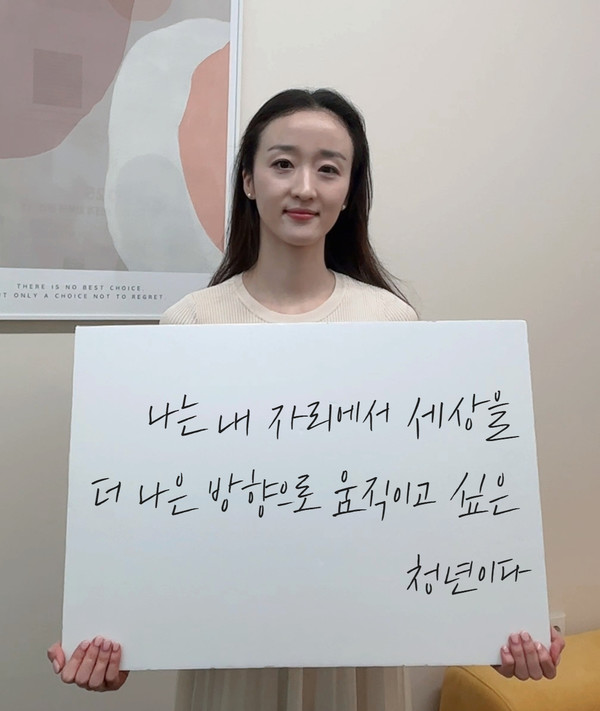 THERE IS NO BEST CHOICE.
T ONLY A CHOICE NOT TO REGRET
나는 내 자리에서 세상을
더 나은 방향으로 움직이고 싶은
청년이다